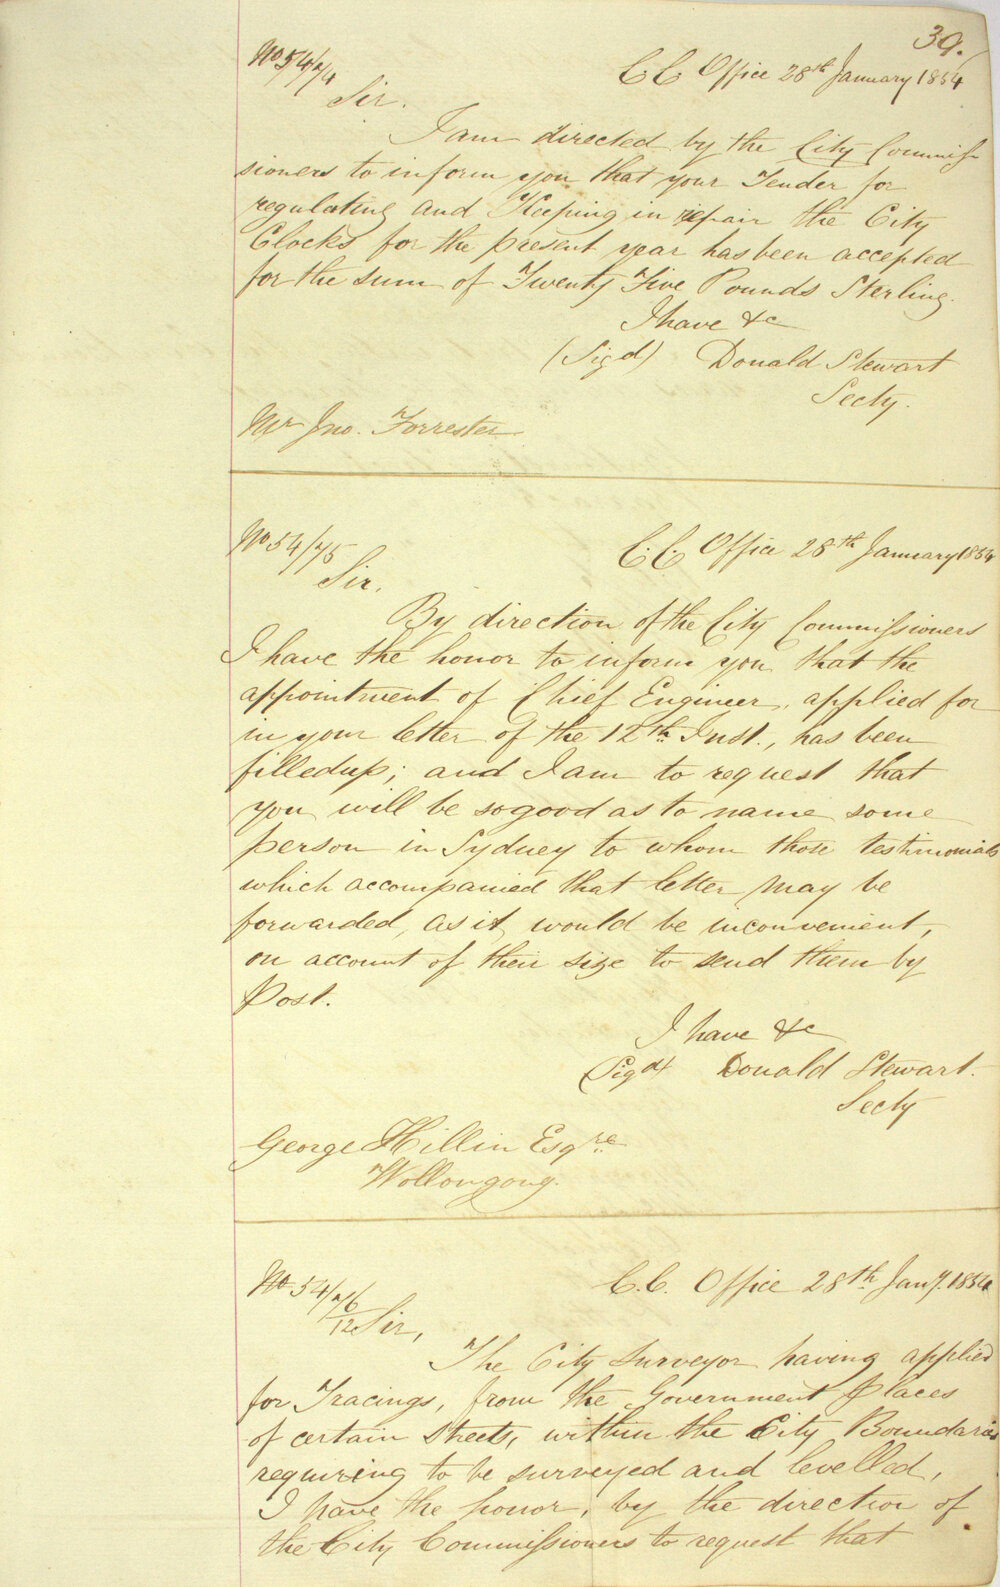 39.
No 54/74
C C Office 28th January 1854
Sir.
I am directed by the City Commis
sioners to inform you that your Tender for
regulating and Keeping in repair the City
Clocks for the present year has been accepted
for the sum of Twenty Five Pounds Sterling.
I have &c
(Sigd) Donald Stewart
Secty.
Mr Jno. Forrester
No 54/75
C.C. Office 28th January 1854
Sir.
By direction of the City Commissioners
I have the honor to inform you that the
appointment of Chief Engineer, applied for
in your letter of the 12th Inst., has been
filled up; and I am to request that
you will be so good as to name some
person in Sydney to whom those testimonials
which accompanied that letter may be
forwarded, as it would be inconvenient,
on account of their size to send them by
Post.
I have &c
(Sigd) Donald Stewart.
Secty
George Hillin Esqre
Wollongong.
No 54/76/12
C.C. Office 28th Jany. 1854
Sir,
The City Surveyor having applied
for Tracings, from the Government Places
of certain Streets, within the City Boundaries
requiring to be surveyed and levelled,
I have the honor, by the direction of
the City Commissioners to request that